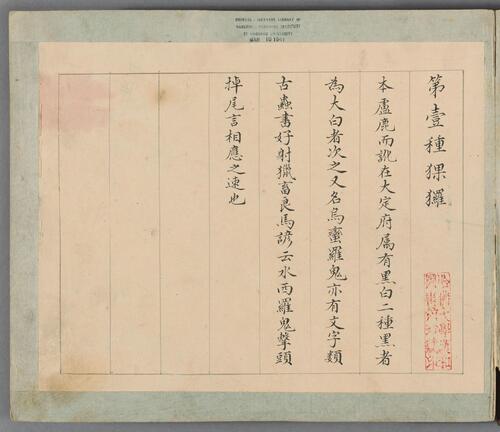 第壹種猓玀
本盧鹿而訛在大定府属有黑白二種黑者
為大白者次之又名烏蠻羅鬼亦有文字類
古蟲書好射獵畜良馬諺云水西羅鬼擊頭
掉尾言相應之速也